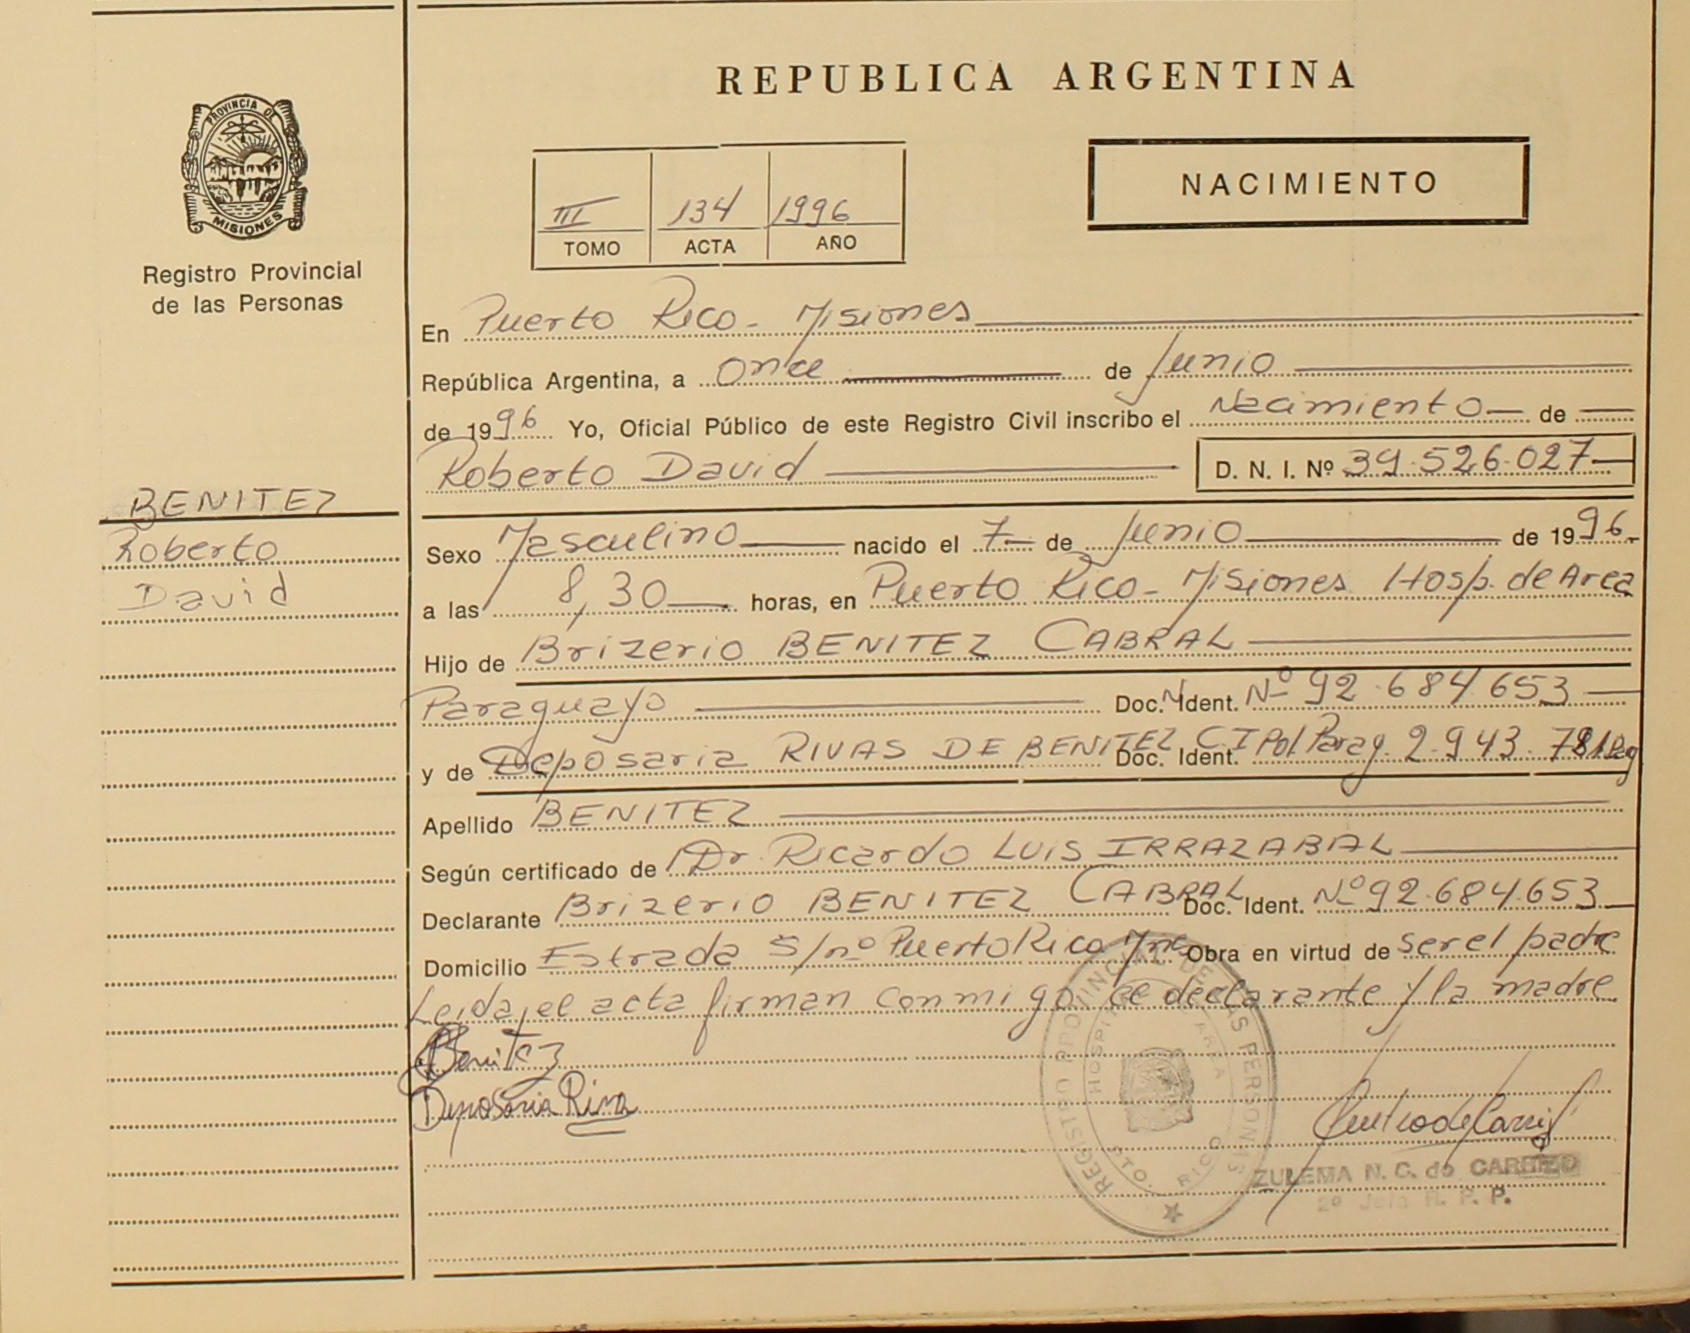 REPUBLICA ARGENTINA
PROVINCIA DE
MISIONES
Registro Provincial
de las Personas
NACIMIENTO
III 134 1996
TOMO ACTA AÑO
En Puerto Rico - Misiones
República Argentina, a once de Junio
de 1996 Yo, Oficial Público de este Registro Civil inscribo el Nacimiento de
Roberto David D. N. I. Nº 39.526.027
BENITEZ
Roberto
David
Sexo Masculino nacido el 7 de Junio de 1996
a las 8,30 horas, en Puerto Rico - Misiones Hosp. de Area
Hijo de Brizerio BENITEZ CABRAL
Paraguayo Doc. Ident. Nº 92.684.653
y de Deposaria RIVAS DE BENITEZ Doc. Ident. C I Pol Parag. 2.943.781
Apellido BENITEZ
Según certificado de Dr. Ricardo LUIS IRRAZABAL
Declarante Brizerio BENITEZ CABRAL Doc. Ident. Nº 92.684.653
Domicilio Estrada S/nº Puerto Rico Obra en virtud de ser el padre
Leida, el acta firman conmigo el declarante y la madre
Benitez
Deposaria Riva
REGISTRO PROVINCIAL DE LAS PERSONAS
HOSPITAL DE AREA
PTO. RICO
ZULEMA N. C. de CARRIZO
2º Jefa R. P. P.